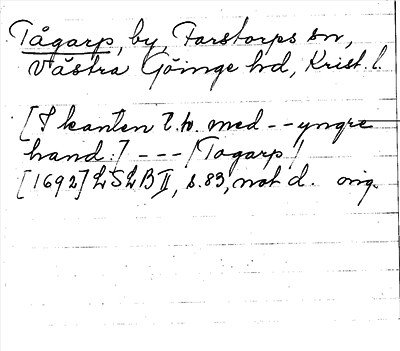 Tågarp, by, Farstorps sn,
Västra Göinge hd, Krist. l.
[I kanten t.h. med -- yngre
hand:] --- /Togarp/
[1692] LSLB II, s. 83, not d. orig.